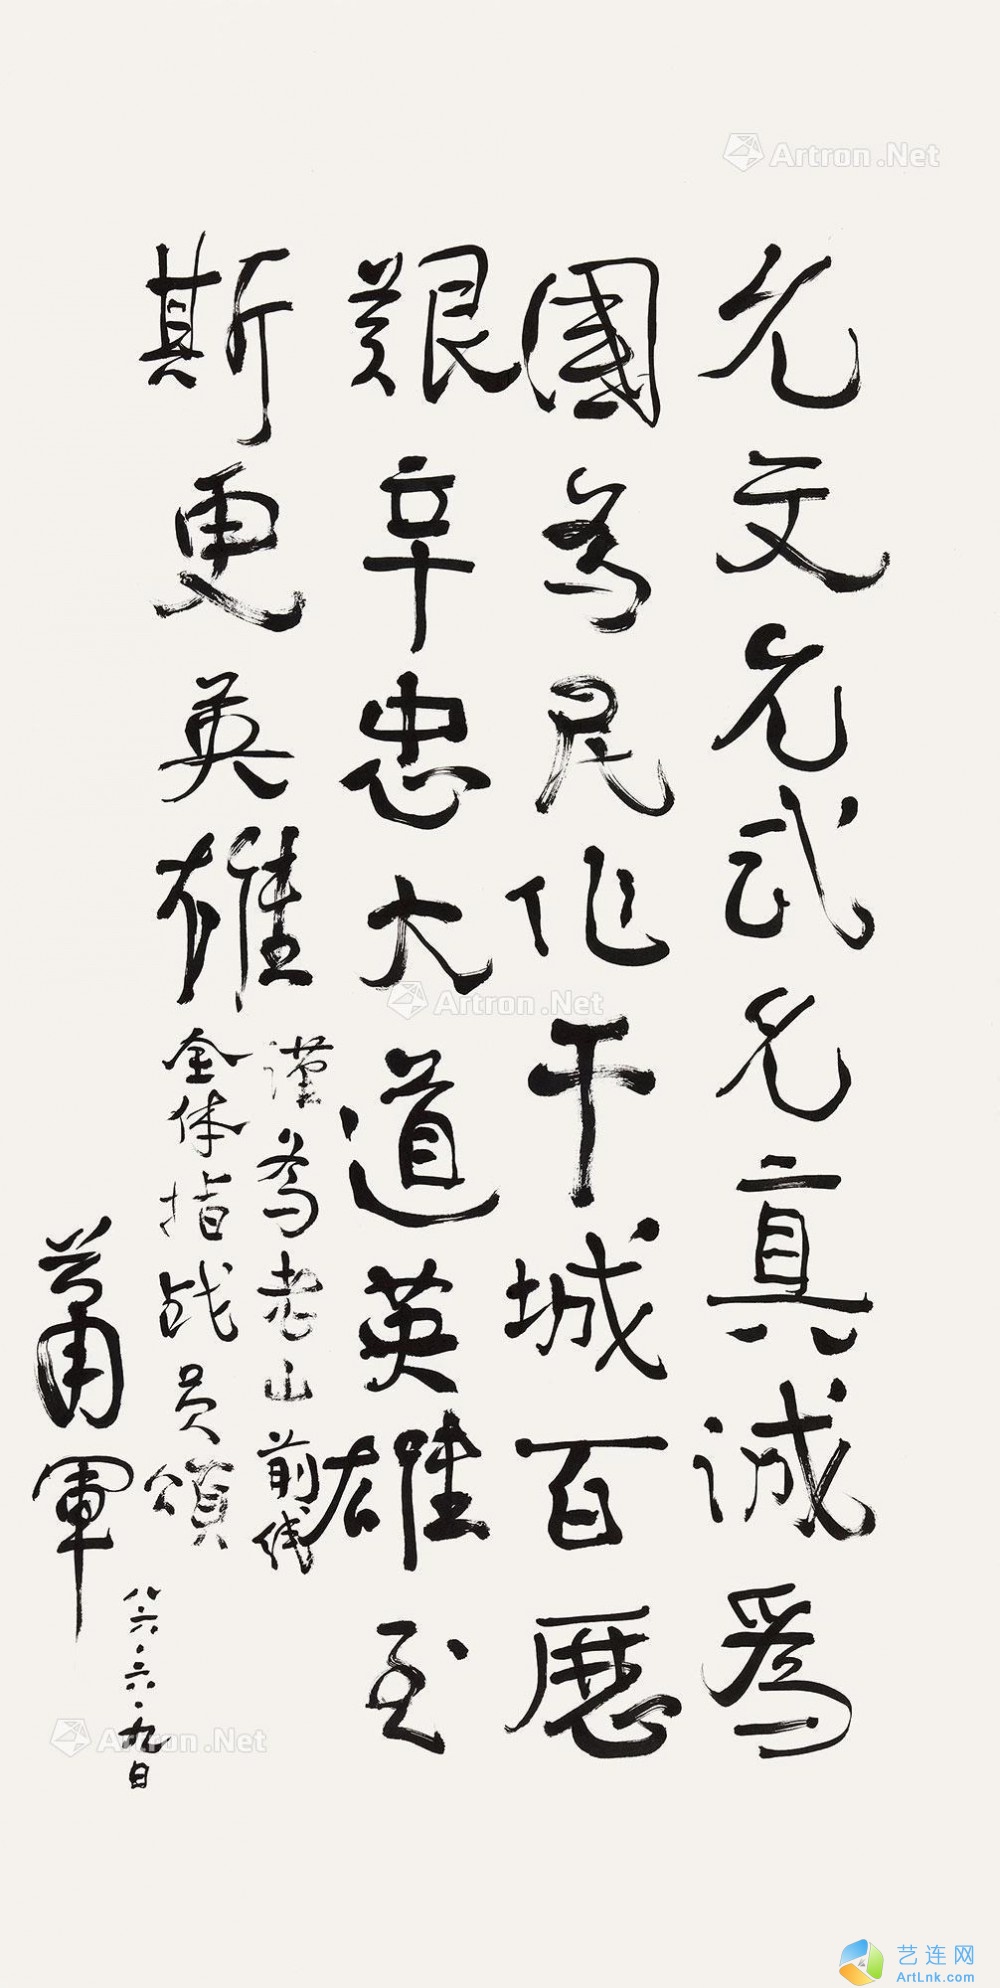 允文允武允真诚為
國為民作干城百歷
艱辛忠大道英雄至
斯更英雄
谨為老山前线
全体指战员頌
萧軍
八六.六.九日
Artron.Net
Artron.Net
Artron.Net
艺连网
ArtLnk.com